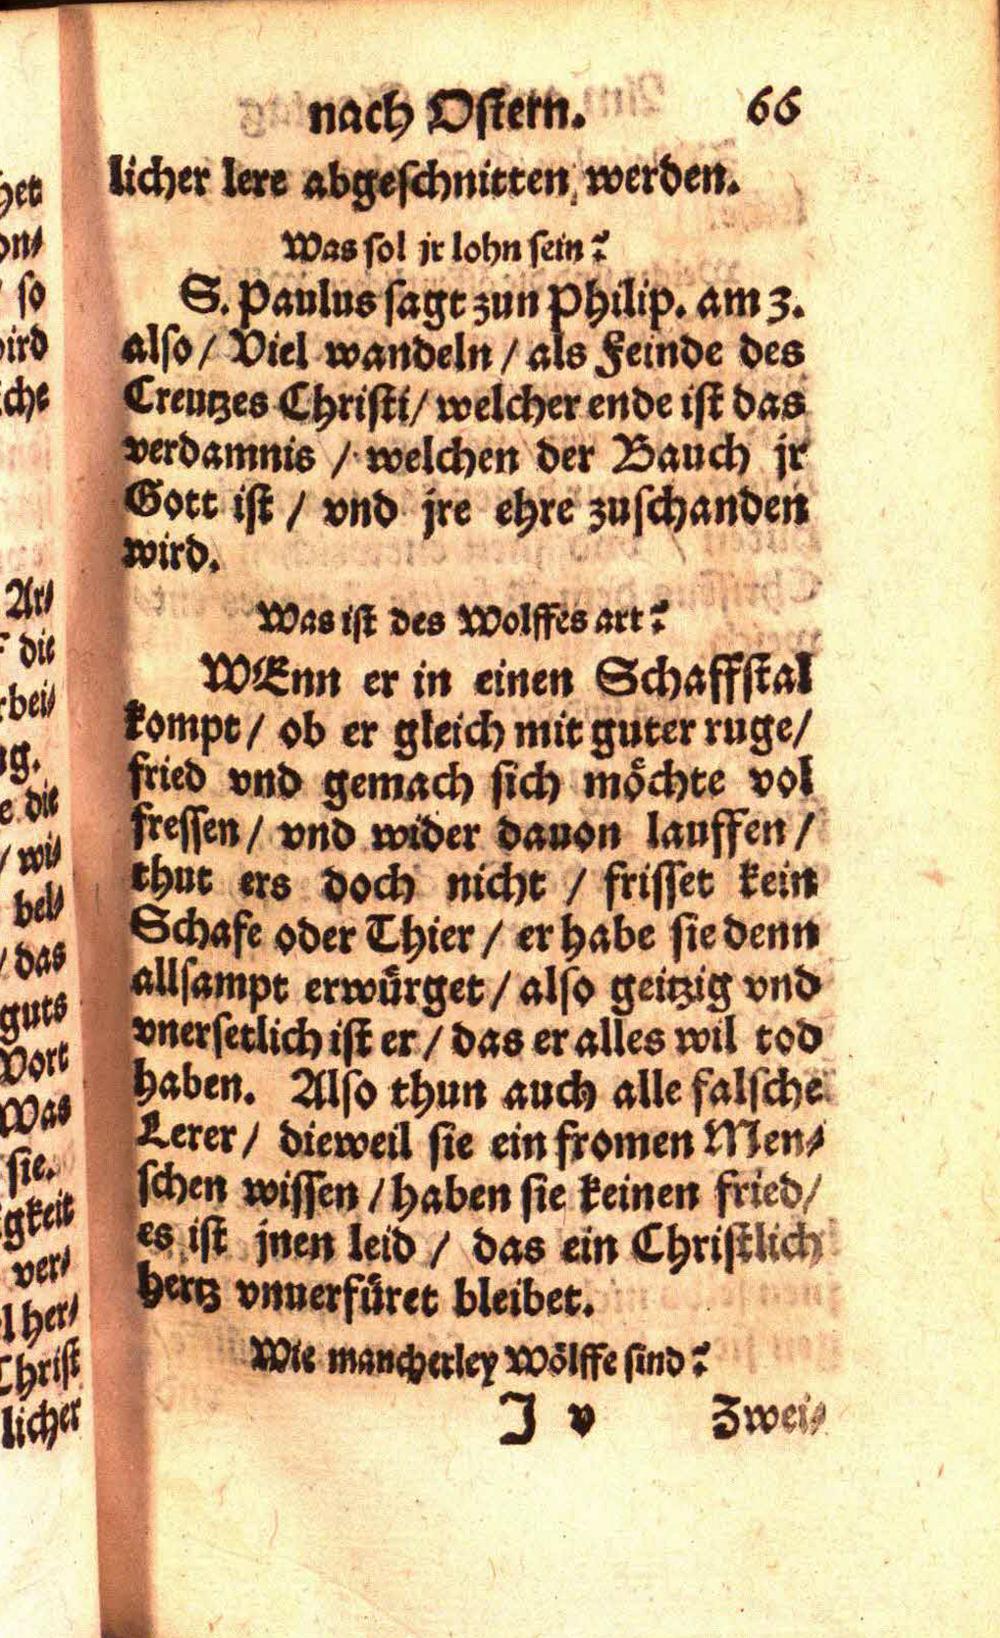 nach Oſtern. 66
licher lere abgeſchnitten werden.
Was ſol jr lohn ſein?
S. Paulus ſagt zun Philip. am 3.
alſo/ Viel wandeln / als Feinde des
Creutzes Chriſti/ welcher ende iſt das
verdamnis / welchen der Bauch jr
Gott iſt / vnd jre ehre zuſchanden
wird.
Was iſt des Wolffes art?
WEnn er in einen Schaffſtal
kompt/ ob er gleich mit guter ruge/
fried vnd gemach ſich moͤchte vol
freſſen/ vnd wider dauon lauffen/
thut ers doch nicht / friſſet kein
Schafe oder Thier/ er habe ſie denn
allſampt erwuͤrget/ alſo geitzig vnd
vnerſetlich iſt er/ das er alles wil tod
haben. Alſo thun auch alle falſche
Lerer/ dieweil ſie ein fromen Men⸗
ſchen wiſſen /haben ſie keinen fried/
es iſt jnen leid / das ein Chriſtlich
hertz vnuerfuͤret bleibet.
Wie mancherley Woͤlffe ſind?
J v Zwei⸗